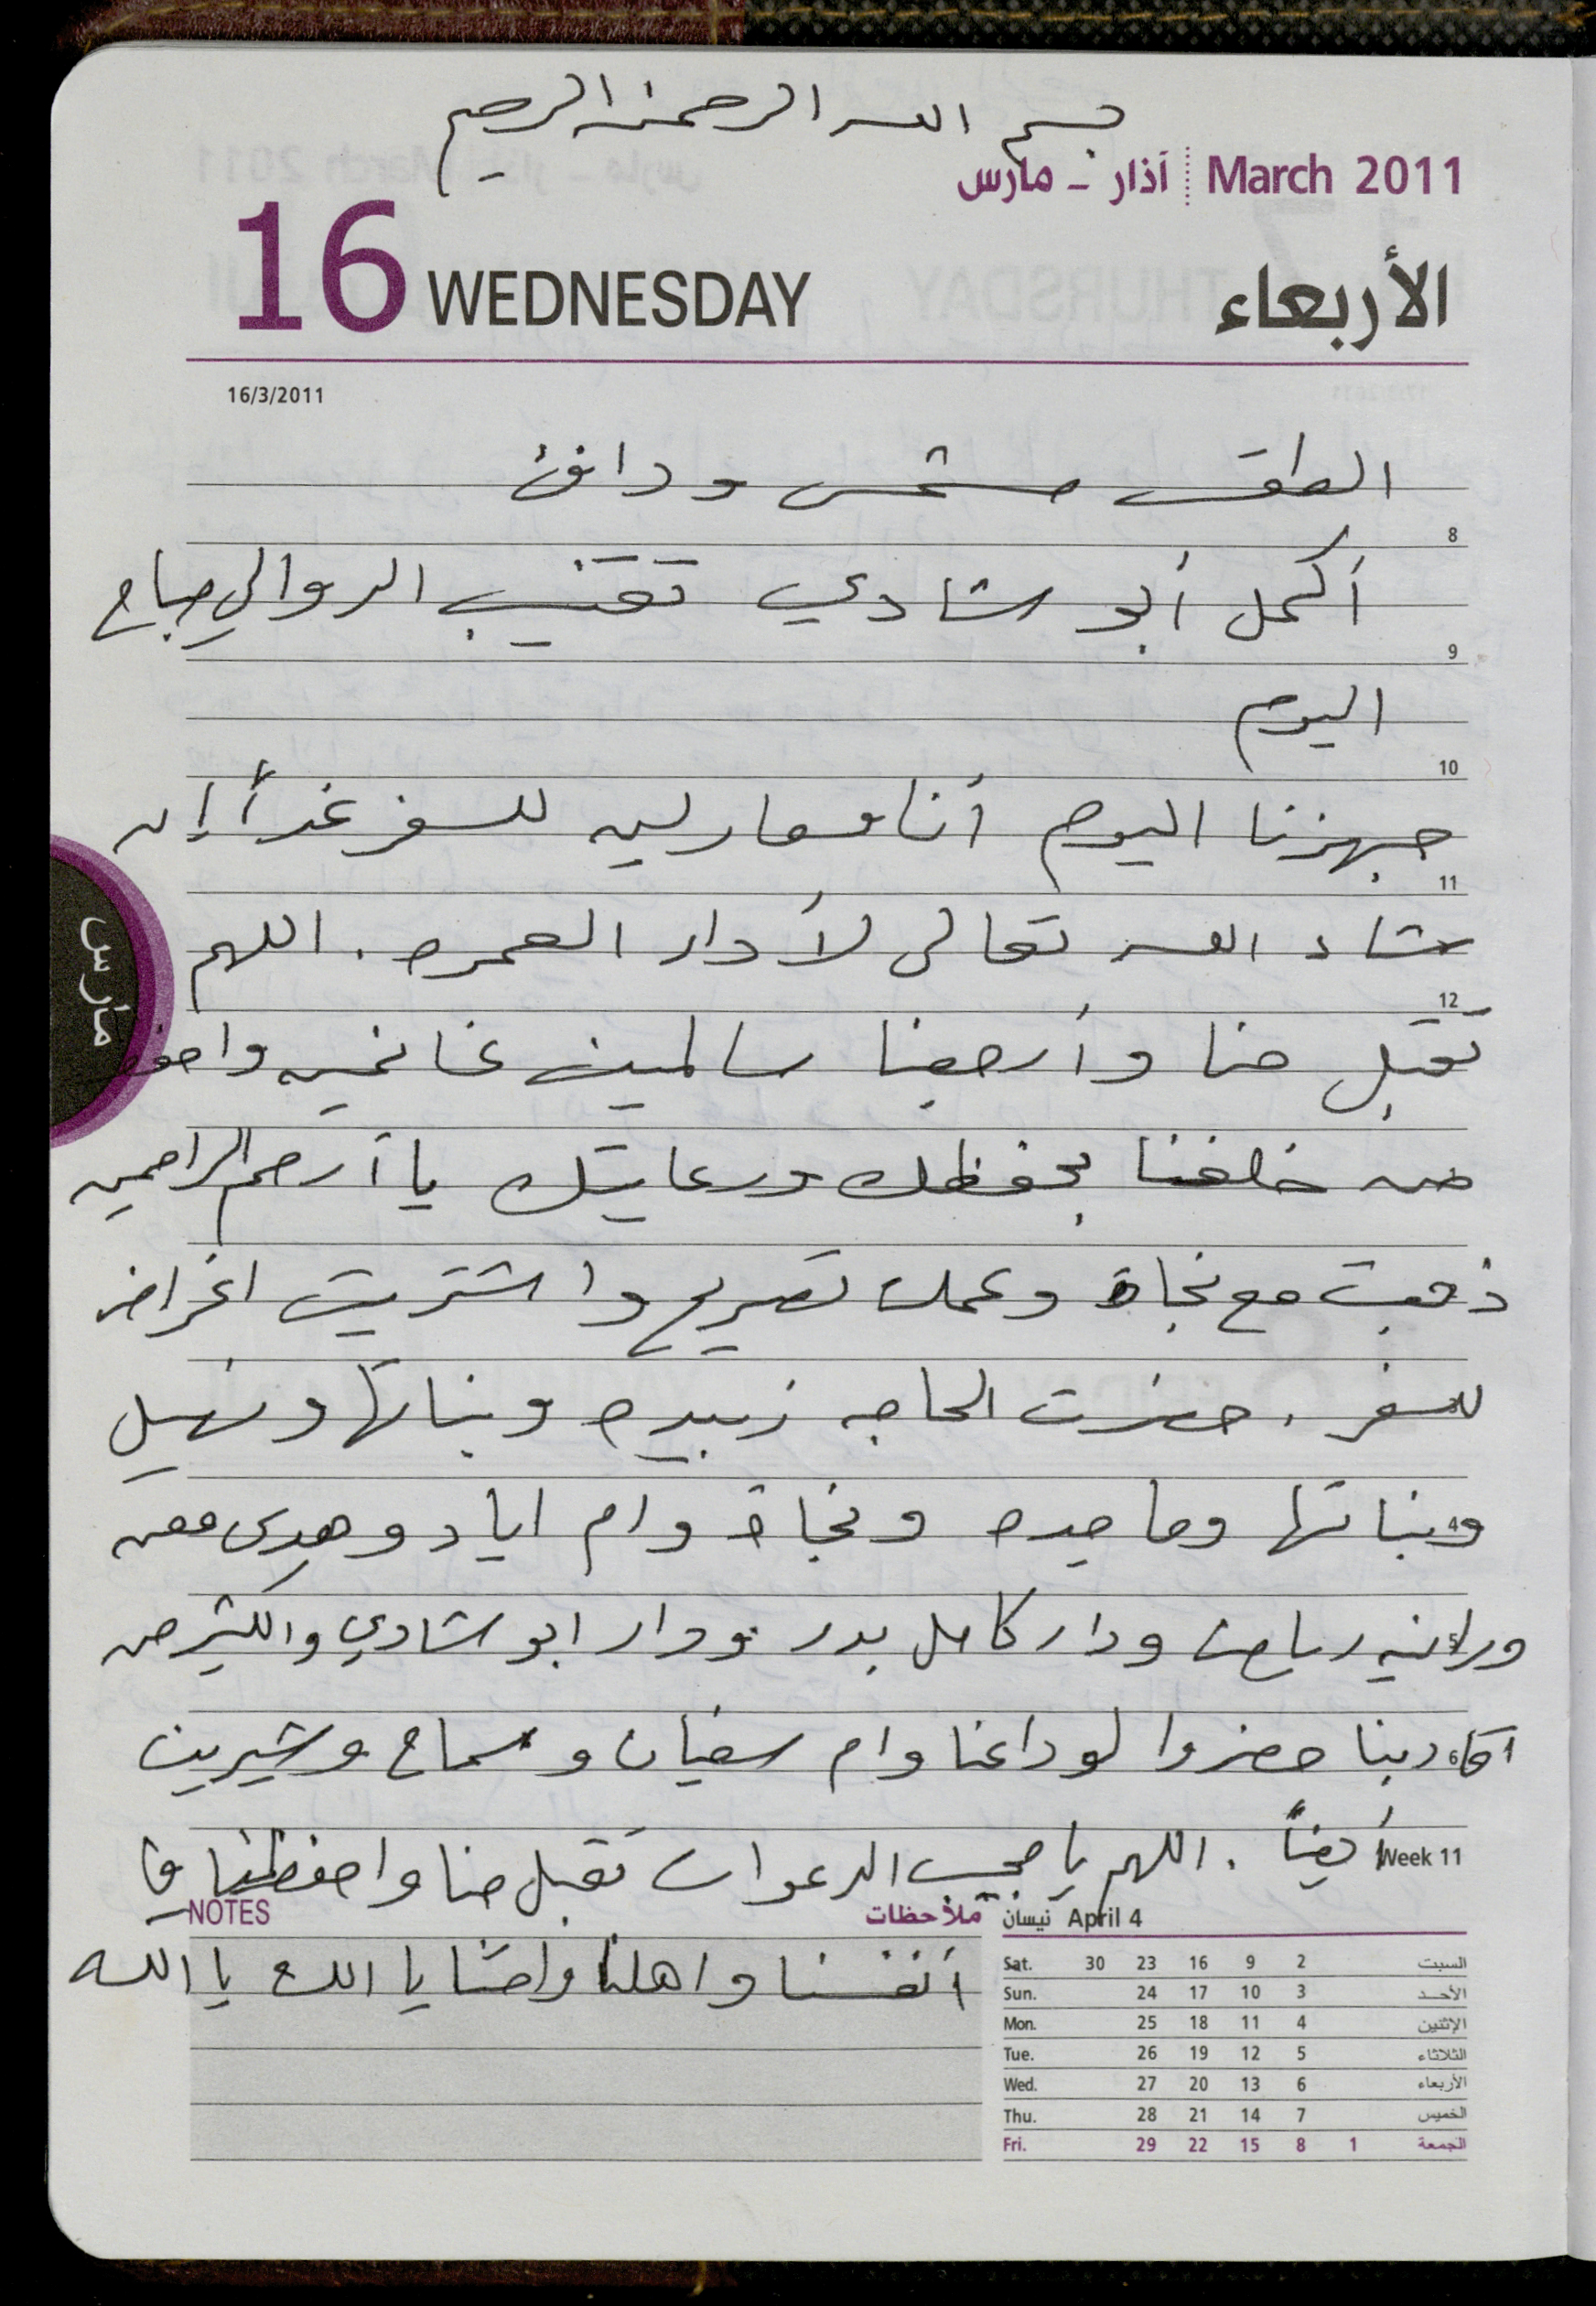 بسم الله الرحمن الرحيم
March 2011 آذار - مارس
16 WEDNESDAY الأربعاء
16/3/2011
الطقس مشمس ودافئ
8
أكمل أبو شادي تقنيب الدوالي صباح
9
اليوم
10
جهزنا اليوم أنا للسفر غداً إن
11
شاء الله تعالى لأداء العمره . اللهم
12
تقبل منا وأرجعنا سالمين غانمين
مارس
من خلفنا بحفظك ورعايتك يا أرحم الراحمين
ذهبت مع نجاة وعملت تصريح واشتريت اغراض
للسفر . حضرت الحاجه زبيده وبناتها ونهيل
4
وبناتها وماجده ونجاة وام اياد وهدى معن
5
ورانيه رياض ودار كامل بدر ودار ابو شادي والكثير من
6
اقاربنا حضروا لوداعنا وام سفيان وسماح وشيرين
Week 11
أيضاً . اللهم يا مجيب الدعوات تقبل منا واحفظنا في
NOTES ملاحظات
أنفسنا واهلنا يا الله يا الله
April 4 نيسان
Sat. 30 23 16 9 2 السبت
Sun. 24 17 10 3 الأحد
Mon. 25 18 11 4 الإثنين
Tue. 26 19 12 5 الثلاثاء
Wed. 27 20 13 6 الأربعاء
Thu. 28 21 14 7 الخميس
Fri. 29 22 15 8 1 الجمعة